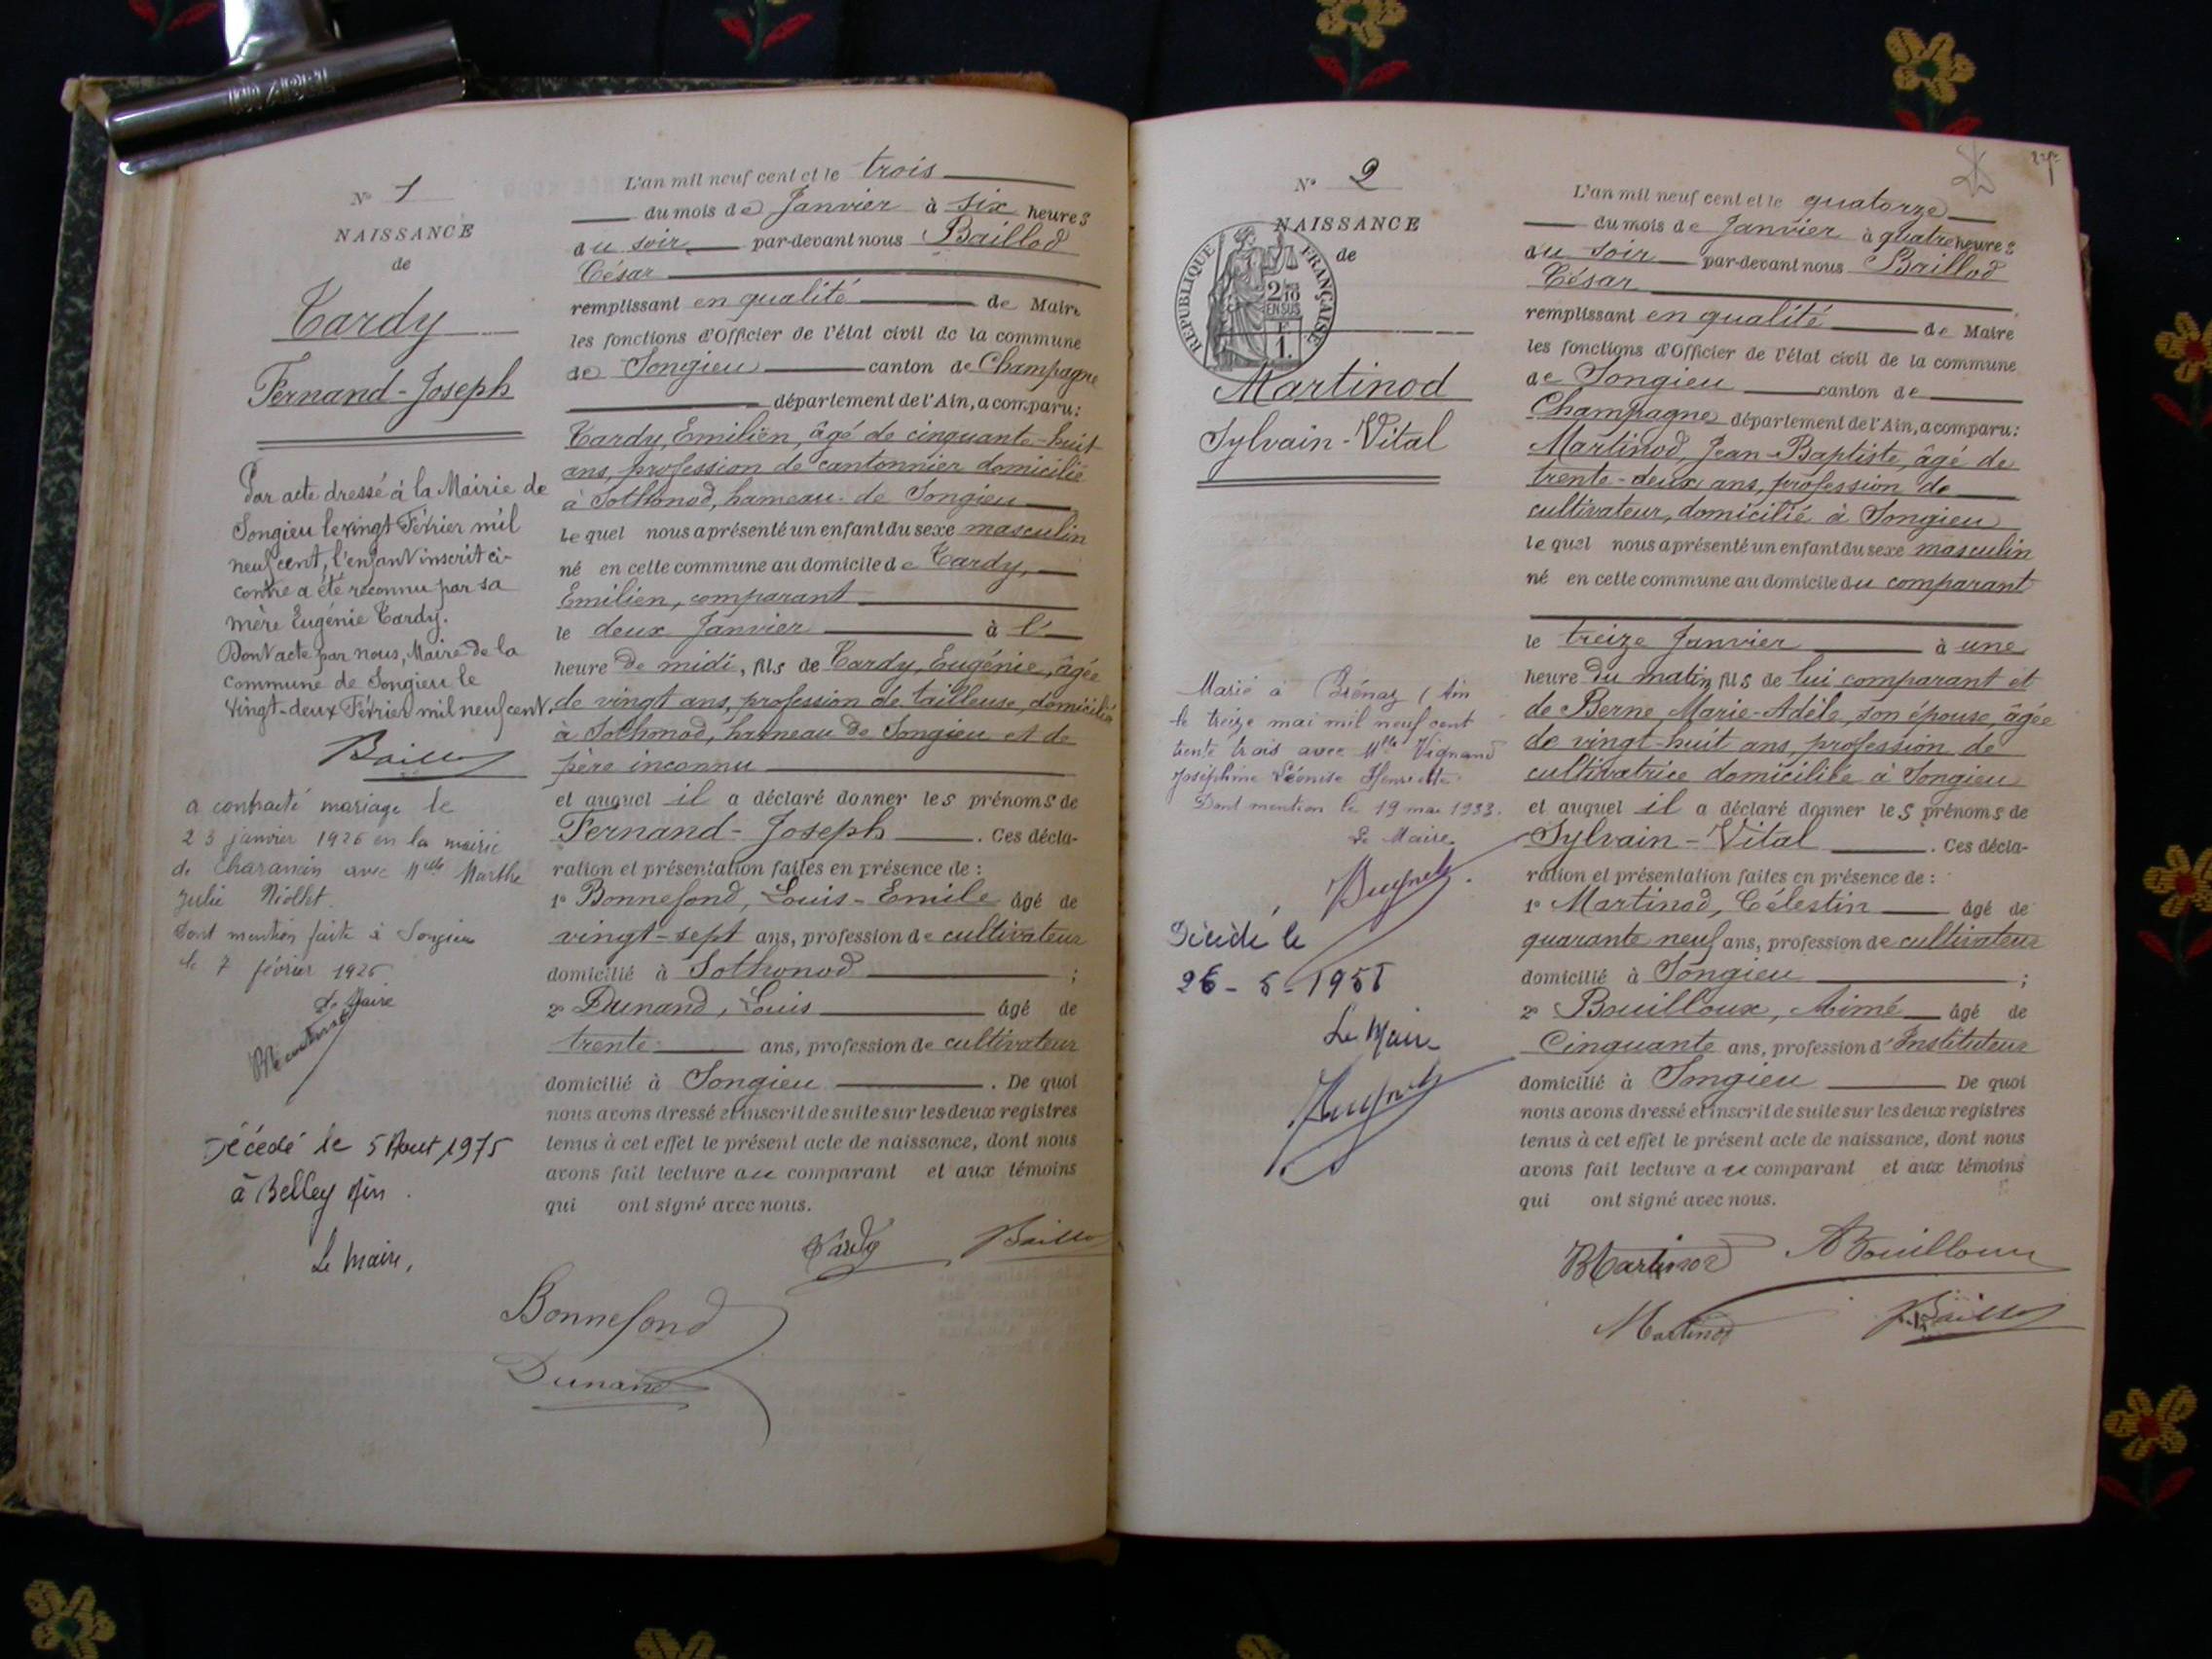 N° 1
NAISSANCE
de
Tardy
Fernand-Joseph
Par acte dressé à la Mairie de
Songieu le vingt Février mil
neuf cent, l'enfant inscrit ci-
contre a été reconnu par sa
mère Eugénie Tardy.
Dont acte par nous, Maire de la
commune de Songieu le
vingt-deux Février mil neuf cent.
Baillod
a contracté mariage le
23 janvier 1926 en la mairie
de Charancin avec Melle Marthe
Julie
Dont mention faite à Songieu
le 7 février 1926
Le Maire
Décédé le 5 Aout 1975
à Belley Ain.
Le Maire,
L'an mil neuf cent et le trois
du mois de Janvier à six heures
du soir par-devant nous Baillod
César
remplissant en qualité de Maire
les fonctions d'Officier de l'état civil de la commune
de Songieu canton de Champagne
département de l'Ain, a comparu:
Tardy, Emilien, âgé de cinquante-huit
ans, profession de cantonnier domicilié
à Sothonod, hameau de Songieu
lequel nous a présenté un enfant du sexe masculin
né en cette commune au domicile de Tardy,
Emilien, comparant
le deux Janvier à l'
heure de midi, fils de Tardy, Eugénie, âgée
de vingt ans, profession de tailleuse, domiciliée
à Sothonod, hameau de Songieu et de
père inconnu
et auquel il a déclaré donner les prénoms de
Fernand-Joseph. Ces décla-
ration et présentation faites en présence de:
1° Bonnefond, Louis-Emile âgé de
vingt-sept ans, profession de cultivateur
domicilié à Sothonod;
2° Dunand, Louis âgé de
trente ans, profession de cultivateur
domicilié à Songieu. De quoi
nous avons dressé et inscrit de suite sur les deux registres
tenus à cet effet le présent acte de naissance, dont nous
avons fait lecture au comparant et aux témoins
qui ont signé avec nous.
Tardy Baillod
Bonnefond
Dunand
N° 2
NAISSANCE
de
REPUBLIQUE FRANÇAISE
2/10
EN SUS
F
1.
Martinod
Sylvain-Vital
Marié à Brénaz (Ain
le treize mai mil neuf cent
trente trois avec Melle Vignand
Joséphine Léonise Henriette
Dont mention le 19 mai 1933.
Le Maire
Décédé le
26-5-1951
Le Maire
L'an mil neuf cent et le quatorze
du mois de Janvier à quatre heures
du soir par-devant nous Baillod
César
remplissant en qualité de Maire
les fonctions d'Officier de l'état civil de la commune
de Songieu canton de
Champagne département de l'Ain, a comparu:
Martinod, Jean-Baptiste, âgé de
trente-deux ans, profession de
cultivateur, domicilié à Songieu
lequel nous a présenté un enfant du sexe masculin
né en cette commune au domicile du comparant
le treize Janvier à une
heure du matin, fils de lui comparant et
de Berne, Marie-Adèle, son épouse, âgée
de vingt-huit ans, profession de
cultivatrice domiciliée à Songieu
et auquel il a déclaré donner les prénoms de
Sylvain-Vital. Ces décla-
ration et présentation faites en présence de:
1° Martinod, Célestin âgé de
quarante neuf ans, profession de cultivateur
domicilié à Songieu;
2° Bouilloux, Aimé âgé de
Cinquante ans, profession d'Instituteur
domicilié à Songieu De quoi
nous avons dressé et inscrit de suite sur les deux registres
tenus à cet effet le présent acte de naissance, dont nous
avons fait lecture au comparant et aux témoins
qui ont signé avec nous.
Martinod ABouilloux
Martinod Baillod